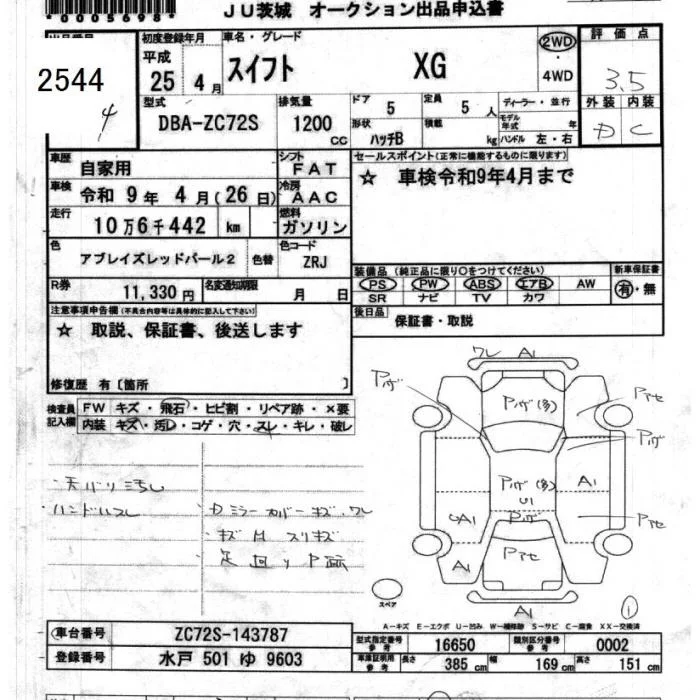 *0005698*
JU茨城 オークション出品申込書
出品番号
2544
4
初度登録年月
平成
25年 4月
車名・グレード
スイフト XG
2WD
・
4WD
評価点
3.5
外装 内装
D C
型式
DBA-ZC72S
排気量
1200 CC
ドア 5
定員 5 人
ディーラー・並行
形状 ハッチB
積載 kg
モデル年式 年
ハンドル 左・右
車歴 自家用
シフト FAT
車検 令和 9年 4月(26日)
冷房 AAC
走行 10万6千442 km
燃料 ガソリン
色 アブレイズレッドパール2 色替
色コード ZRJ
R券 11,330円
名変通知期限 月 日
セールスポイント(正常に機能するものに限ります)
☆ 車検令和9年4月まで
装備品(純正品に限り○をつけてください)
PS PW ABS エアB AW
SR ナビ TV カワ
新車保証書
有・無
後日品 保証書・取説
注意事項申告欄(不具合内容等は具体的に記入して下さい)
☆ 取説、保証書、後送します
修復歴 有〔箇所 〕
検査員記入欄
FW キズ・飛石・ヒビ割・リペア跡・×要
内装 キズ・汚レ・コゲ・穴・スレ・キレ・破レ
・天バリ汚レ
・ハンドルスレ
・Dミラーカバーキズ、ワレ
・キズ
スリキズ
足回り
ワレ A1
Pハゲ
Pハゲ(多)
Pアセ
Pハゲ
Pハゲ(多)
U1
A1
Pハゲ
UA1
Pアセ
Pアセ
A1
A1
スペア
1
A-キズ E-エクボ U-凹み W-補修跡 S-サビ C-腐食 XX-交換済
車台番号 ZC72S-143787
登録番号 水戸 501 ゆ 9603
型式指定番号 参考 16650
類別区分番号 参考 0002
車庫証明用 参考 長さ 385 cm 幅 169 cm 高さ 151 cm